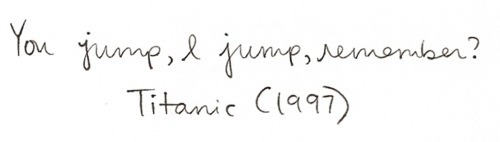 You jump, I jump, remember?
Titanic (1997)